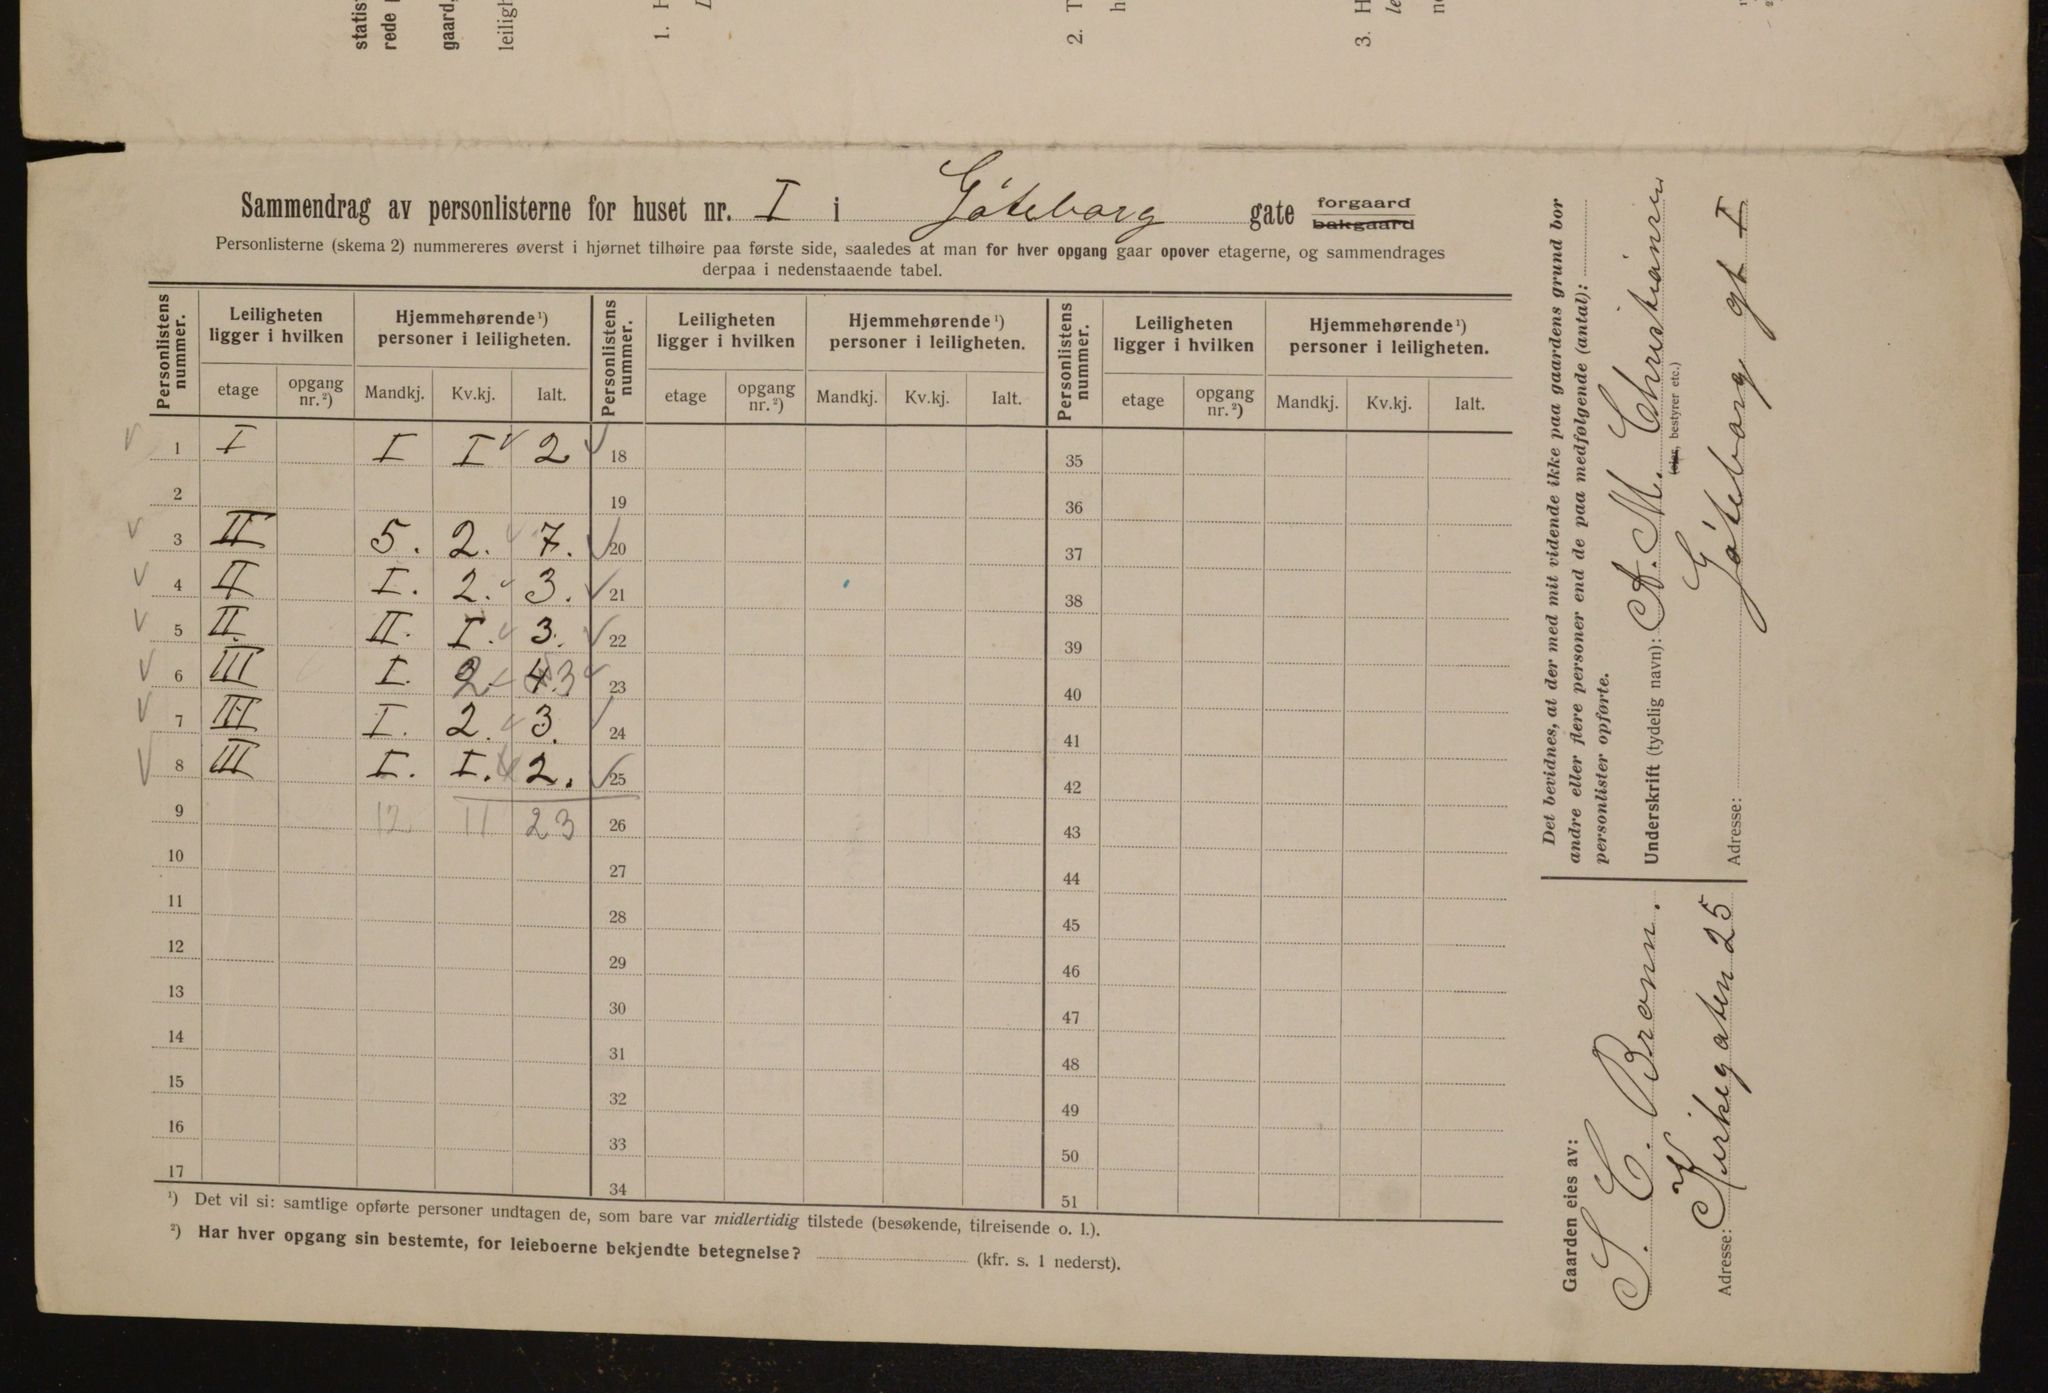 statis
rede
gaard,
leiligh
1. H
L
2. T
h
3. H
le
n
Sammendrag av personlisterne for huset nr. I i Göteborg gate forgaard ~~bakgaard~~
Personlisterne (skema 2) nummereres øverst i hjørnet tilhøire paa første side, saaledes at man for hver opgang gaar opover etagerne, og sammendrages
derpaa i nedenstaaende tabel.
Personlistens nummer. | Leiligheten ligger i hvilken | Hjemmehørende¹) personer i leiligheten. | Personlistens nummer. | Leiligheten ligger i hvilken | Hjemmehørende¹) personer i leiligheten. | Personlistens nummer. | Leiligheten ligger i hvilken | Hjemmehørende¹) personer i leiligheten.
etage | opgang nr.²) | Mandkj. | Kv.kj. | Ialt. | etage | opgang nr.²) | Mandkj. | Kv.kj. | Ialt. | etage | opgang nr.²) | Mandkj. | Kv.kj. | Ialt.
1 I I I 2 18 35
2 19 36
3 II 5. 2. 7. 20 37
4 II I. 2. 3. 21 38
5 II. II. I. 3. 22 39
6 III I. 2. 4. 3 23 40
7 III I. 2. 3. 24 41
8 III I. I. 2. 25 42
9 12 11 23 26 43
10 27 44
11 28 45
12 29 46
13 30 47
14 31 48
15 32 49
16 33 50
17 34 51
¹) Det vil si: samtlige opførte personer undtagen de, som bare var midlertidig tilstede (besøkende, tilreisende o. l.).
²) Har hver opgang sin bestemte, for leieboerne bekjendte betegnelse? (kfr. s. 1 nederst).
Det bevidnes, at der med mit vidende ikke paa gaardens grund bor
andre eller flere personer end de paa medfølgende (antal):
personlister opførte.
Underskrift (tydelig navn): A. M. Christiansen
(~~eier~~, bestyrer etc.)
Adresse: Göteborg gt I
Gaarden eies av:
S. C. Bronn.
Adresse: Kirkegaten 25